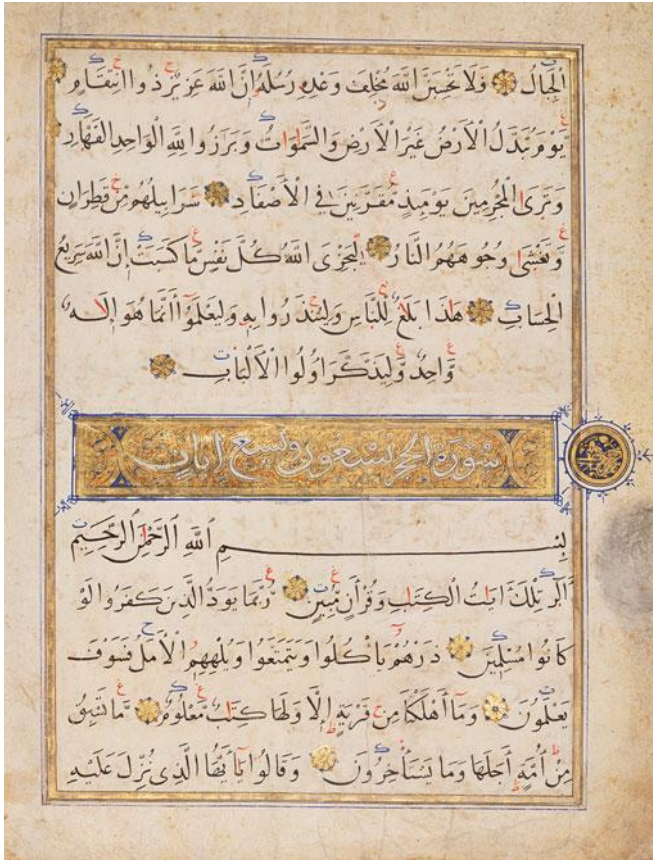 الْجِبَالُ فَلَا تَحْسَبَنَّ اللَّهَ مُخْلِفَ وَعْدِهِ رُسُلَهُ إِنَّ اللَّهَ عَزِيزٌ ذُوا انْتِقَامٍ
يَوْمَ تُبَدَّلُ الْأَرْضُ غَيْرَ الْأَرْضِ وَالسَّمَاوَاتُ وَبَرَزُوا لِلَّهِ الْوَاحِدِ الْقَهَّارِ
وَتَرَى الْمُجْرِمِينَ يَوْمَئِذٍ مُقَرَّنِينَ فِي الْأَصْفَادِ سَرَابِيلُهُمْ مِنْ قَطِرَانٍ
وَتَغْشَى وُجُوهَهُمُ النَّارُ لِيَجْزِيَ اللَّهُ كُلَّ نَفْسٍ مَّا كَسَبَتْ إِنَّ اللَّهَ سَرِيعُ
الْحِسَابِ هَذَا بَلَاغٌ لِلنَّاسِ وَلِيُنْذَرُوا بِهِ وَلِيَعْلَمُوا أَنَّمَا هُوَ إِلَهٌ
وَّاحِدٌ وَّلِيَذَّكَّرَ اُولُوا الْأَلْبَابِ
سورة الحجر تسعون وتسع ايات
بِسْمِ اللَّهِ الرَّحْمَنِ الرَّحِيمِ
الر تِلْكَ اٰيَاتُ الْكِتَابِ وَقُرْآنٍ مُّبِينٍ رُّبَمَا يَوَدُّ الَّذِينَ كَفَرُوا لَوْ
كَانُوا مُسْلِمِينَ ذَرْهُمْ يَأْكُلُوا وَيَتَمَتَّعُوا وَيُلْهِهِمُ الْأَمَلُ فَسَوْفَ
يَعْلَمُونَ وَمَا أَهْلَكْنَا مِنْ قَرْيَةٍ إِلَّا وَلَهَا كِتَابٌ مَّعْلُومٌ مَّا تَسْبِقُ
مِنْ أُمَّةٍ أَجَلَهَا وَمَا يَسْتَأْخِرُونَ وَقَالُوا يَا أَيُّهَا الَّذِي نُزِّلَ عَلَيْهِ